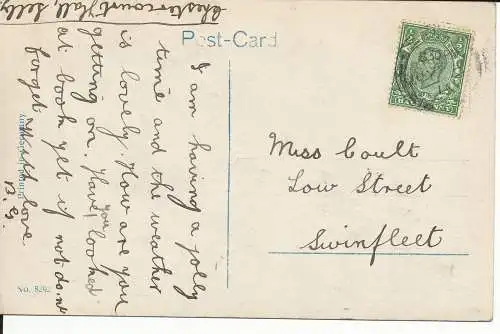 Chestercourt Hall, Selby
Post-Card
I am having a jolly
time and the weather
is lovely. How are you
getting on. Have you looked
at book yet if not don't
forget with love
B. G.
Miss Coult
Low Street
Swinfleet
No. 8292